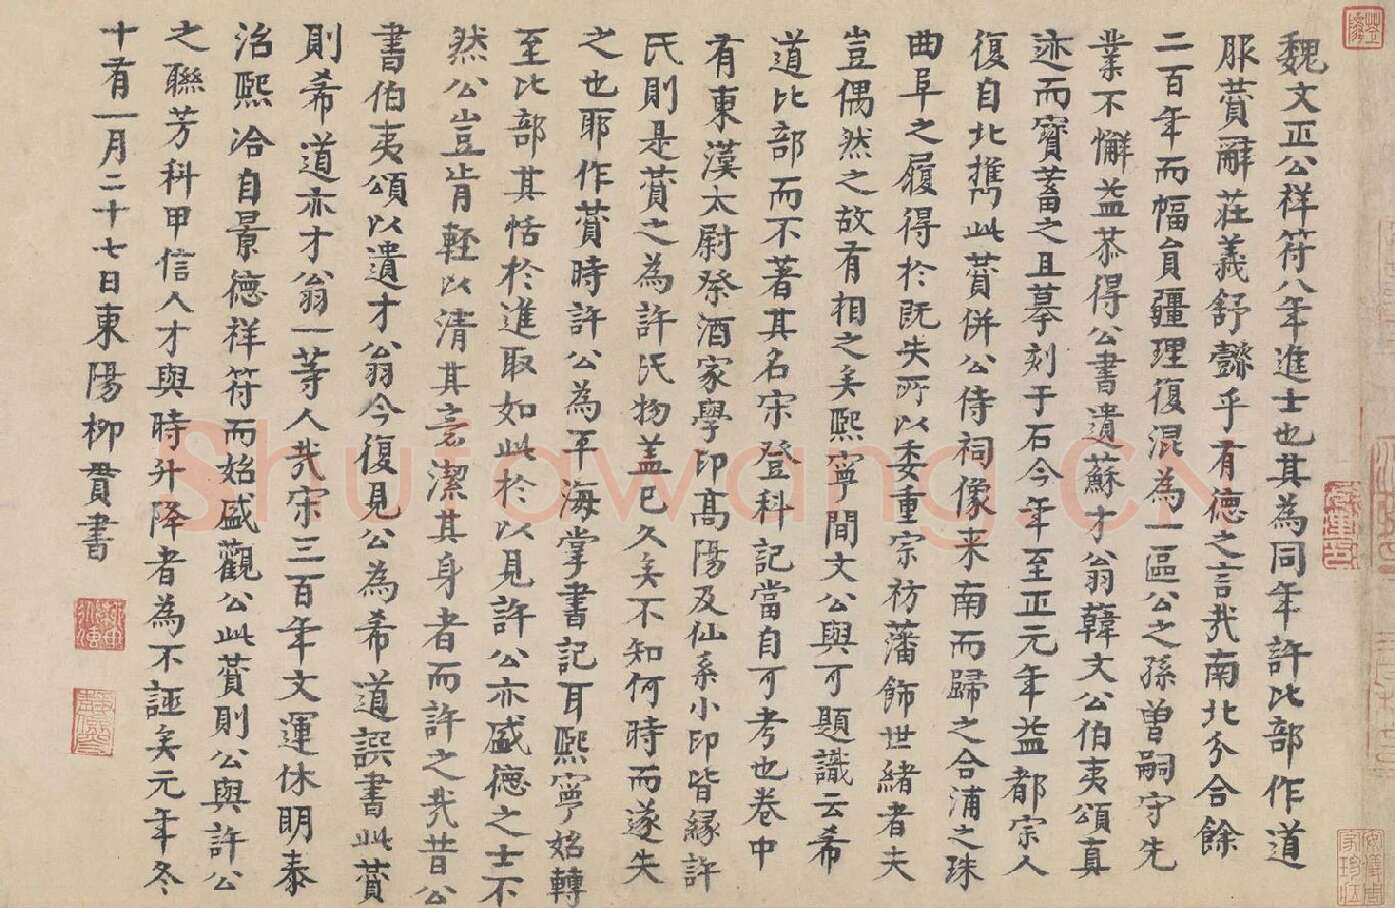 魏文正公祥符八年進士也其為同年許比部作道
服賛辭莊義舒懿乎有德之言哉南北分合餘
二百年而幅員疆理復混為一區公之孫曾嗣守先
業不懈益恭得公書遺蘇才翁韓文公伯夷頌真
迹而寶蓄之且摹刻于石今年至正元年益都宗人
復自北携此賛併公侍祠像来南而歸之合浦之珠
曲阜之履得於既失所以委重宗祊藩飾世緒者夫
豈偶然之故有相之矣熙寧間文公與可題識云希
道比部而不著其名宋登科記當自可考也卷中
有東漢太尉祭酒家學印高陽及仙系小印皆緣許
氏則是賛之為許氏物盖已久矣不知何時而遂失
之也耶作賛時許公為平海掌書記耳熙寧始轉
至比部其恬於進取如此於以見許公亦盛德之士不
然公豈肯輕以清其言潔其身者而許之哉昔公
書伯夷頌以遺才翁今復見公為希道譔書此賛
則希道亦才翁一等人哉宋三百年文運休明泰
治熙洽自景德祥符而始盛觀公此賛則公與許公
之聯芳科甲信人才與時升降者為不誣矣元年冬
十有一月二十七日東陽柳貫書
Shufawang.CN